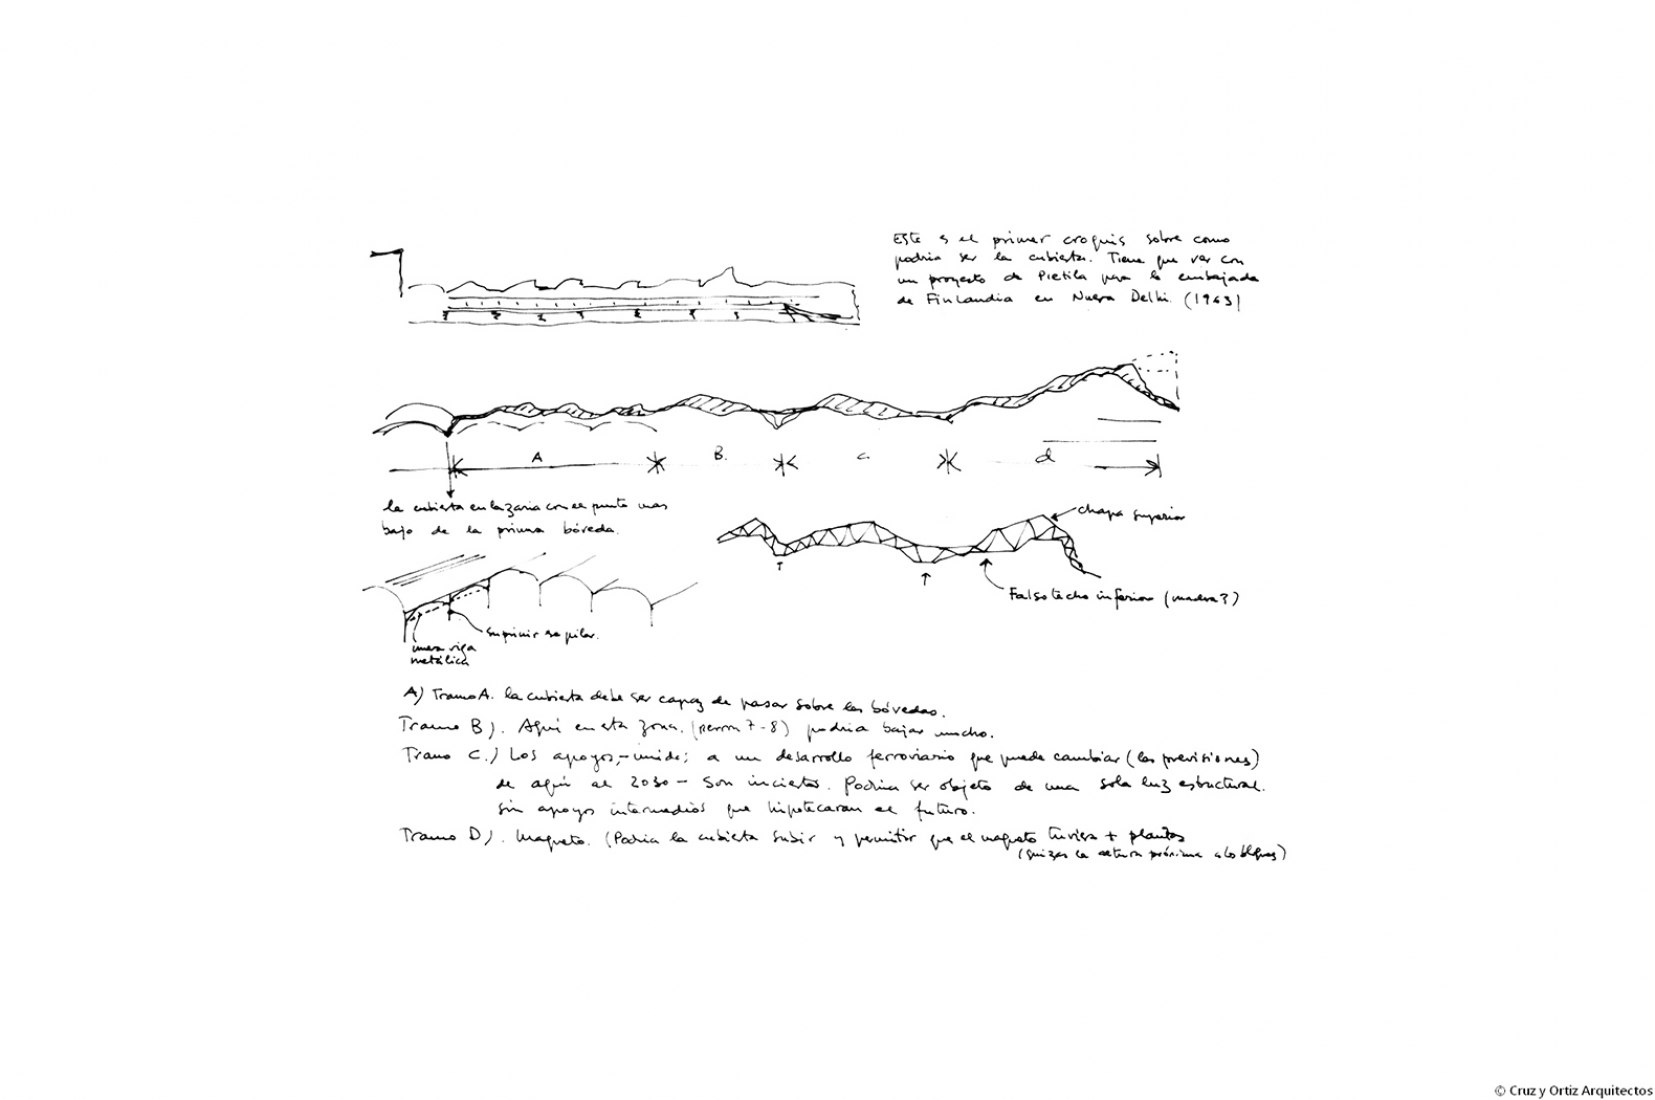 Este es el primer croquis sobre como
podria ser la cubierta. Tiene que ver con
un proyecto de Pietila para la embajada
de Finlandia en Nueva Delhi. (1963)
A
B.
C.
d
la cubierta enlazaria con el punto mas
bajo de la primera bóveda.
chapa superior
Falso techo inferior (madera?)
suprimir ese pilar.
viga
metálica
A) Tramo A. la cubierta debe ser capaz de pasar sobre las bóvedas.
Tramo B). Aquí en esta zona. (7-8) podria bajar mucho.
Tramo C.) Los apoyos, a un desarrollo ferroviario que puede cambiar (las previsiones)
de aquí al 2030 - son inciertas. Podria ser objeto de una sola luz estructural.
sin apoyos intermedios que hipotecaran el futuro.
Tramo D). Maqueto. (Podria la cubierta subir y permitir que el maqueto tuviera + plantas
(quizas la altura próxima a los)
© Cruz y Ortiz Arquitectos